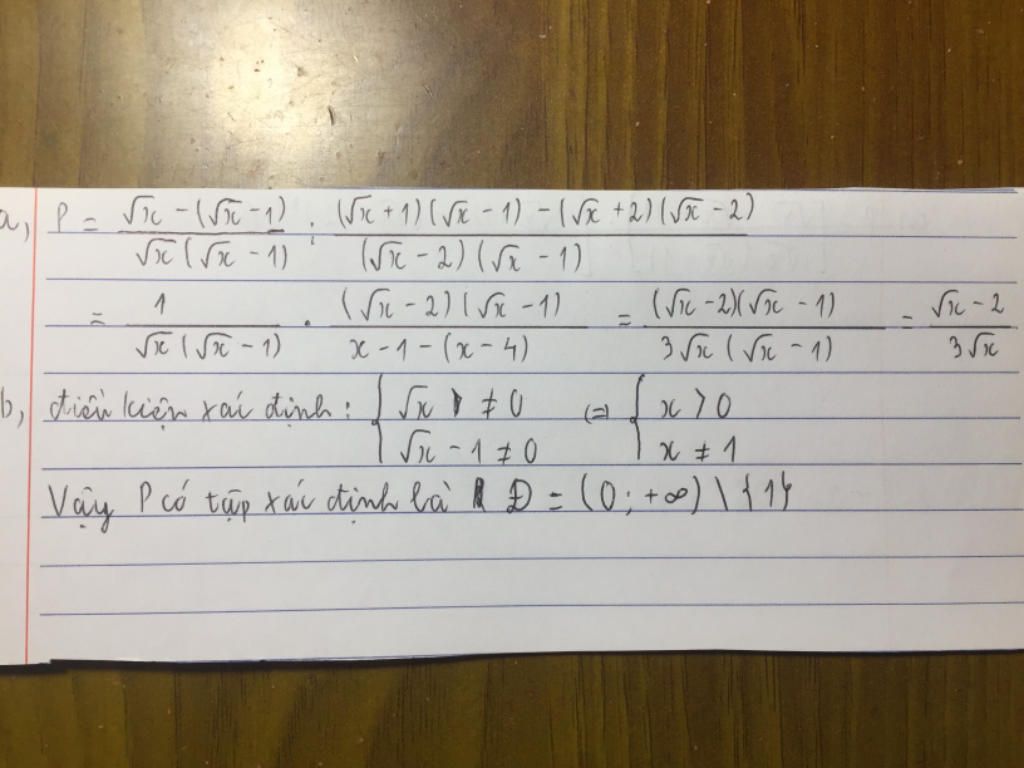 a, P = \frac{\sqrt{x} - (\sqrt{x} - 1)}{\sqrt{x}(\sqrt{x} - 1)} : \frac{(\sqrt{x} + 1)(\sqrt{x} - 1) - (\sqrt{x} + 2)(\sqrt{x} - 2)}{(\sqrt{x} - 2)(\sqrt{x} - 1)}
= \frac{1}{\sqrt{x}(\sqrt{x} - 1)} \cdot \frac{(\sqrt{x} - 2)(\sqrt{x} - 1)}{x - 1 - (x - 4)} = \frac{(\sqrt{x} - 2)(\sqrt{x} - 1)}{3\sqrt{x}(\sqrt{x} - 1)} = \frac{\sqrt{x} - 2}{3\sqrt{x}}
b, điều kiện xác định: \begin{cases} \sqrt{x} \neq 0 \\ \sqrt{x} - 1 \neq 0 \end{cases} \Leftrightarrow \begin{cases} x > 0 \\ x \neq 1 \end{cases}
Vậy P có tập xác định là Đ = (0; +∞) \ {1}